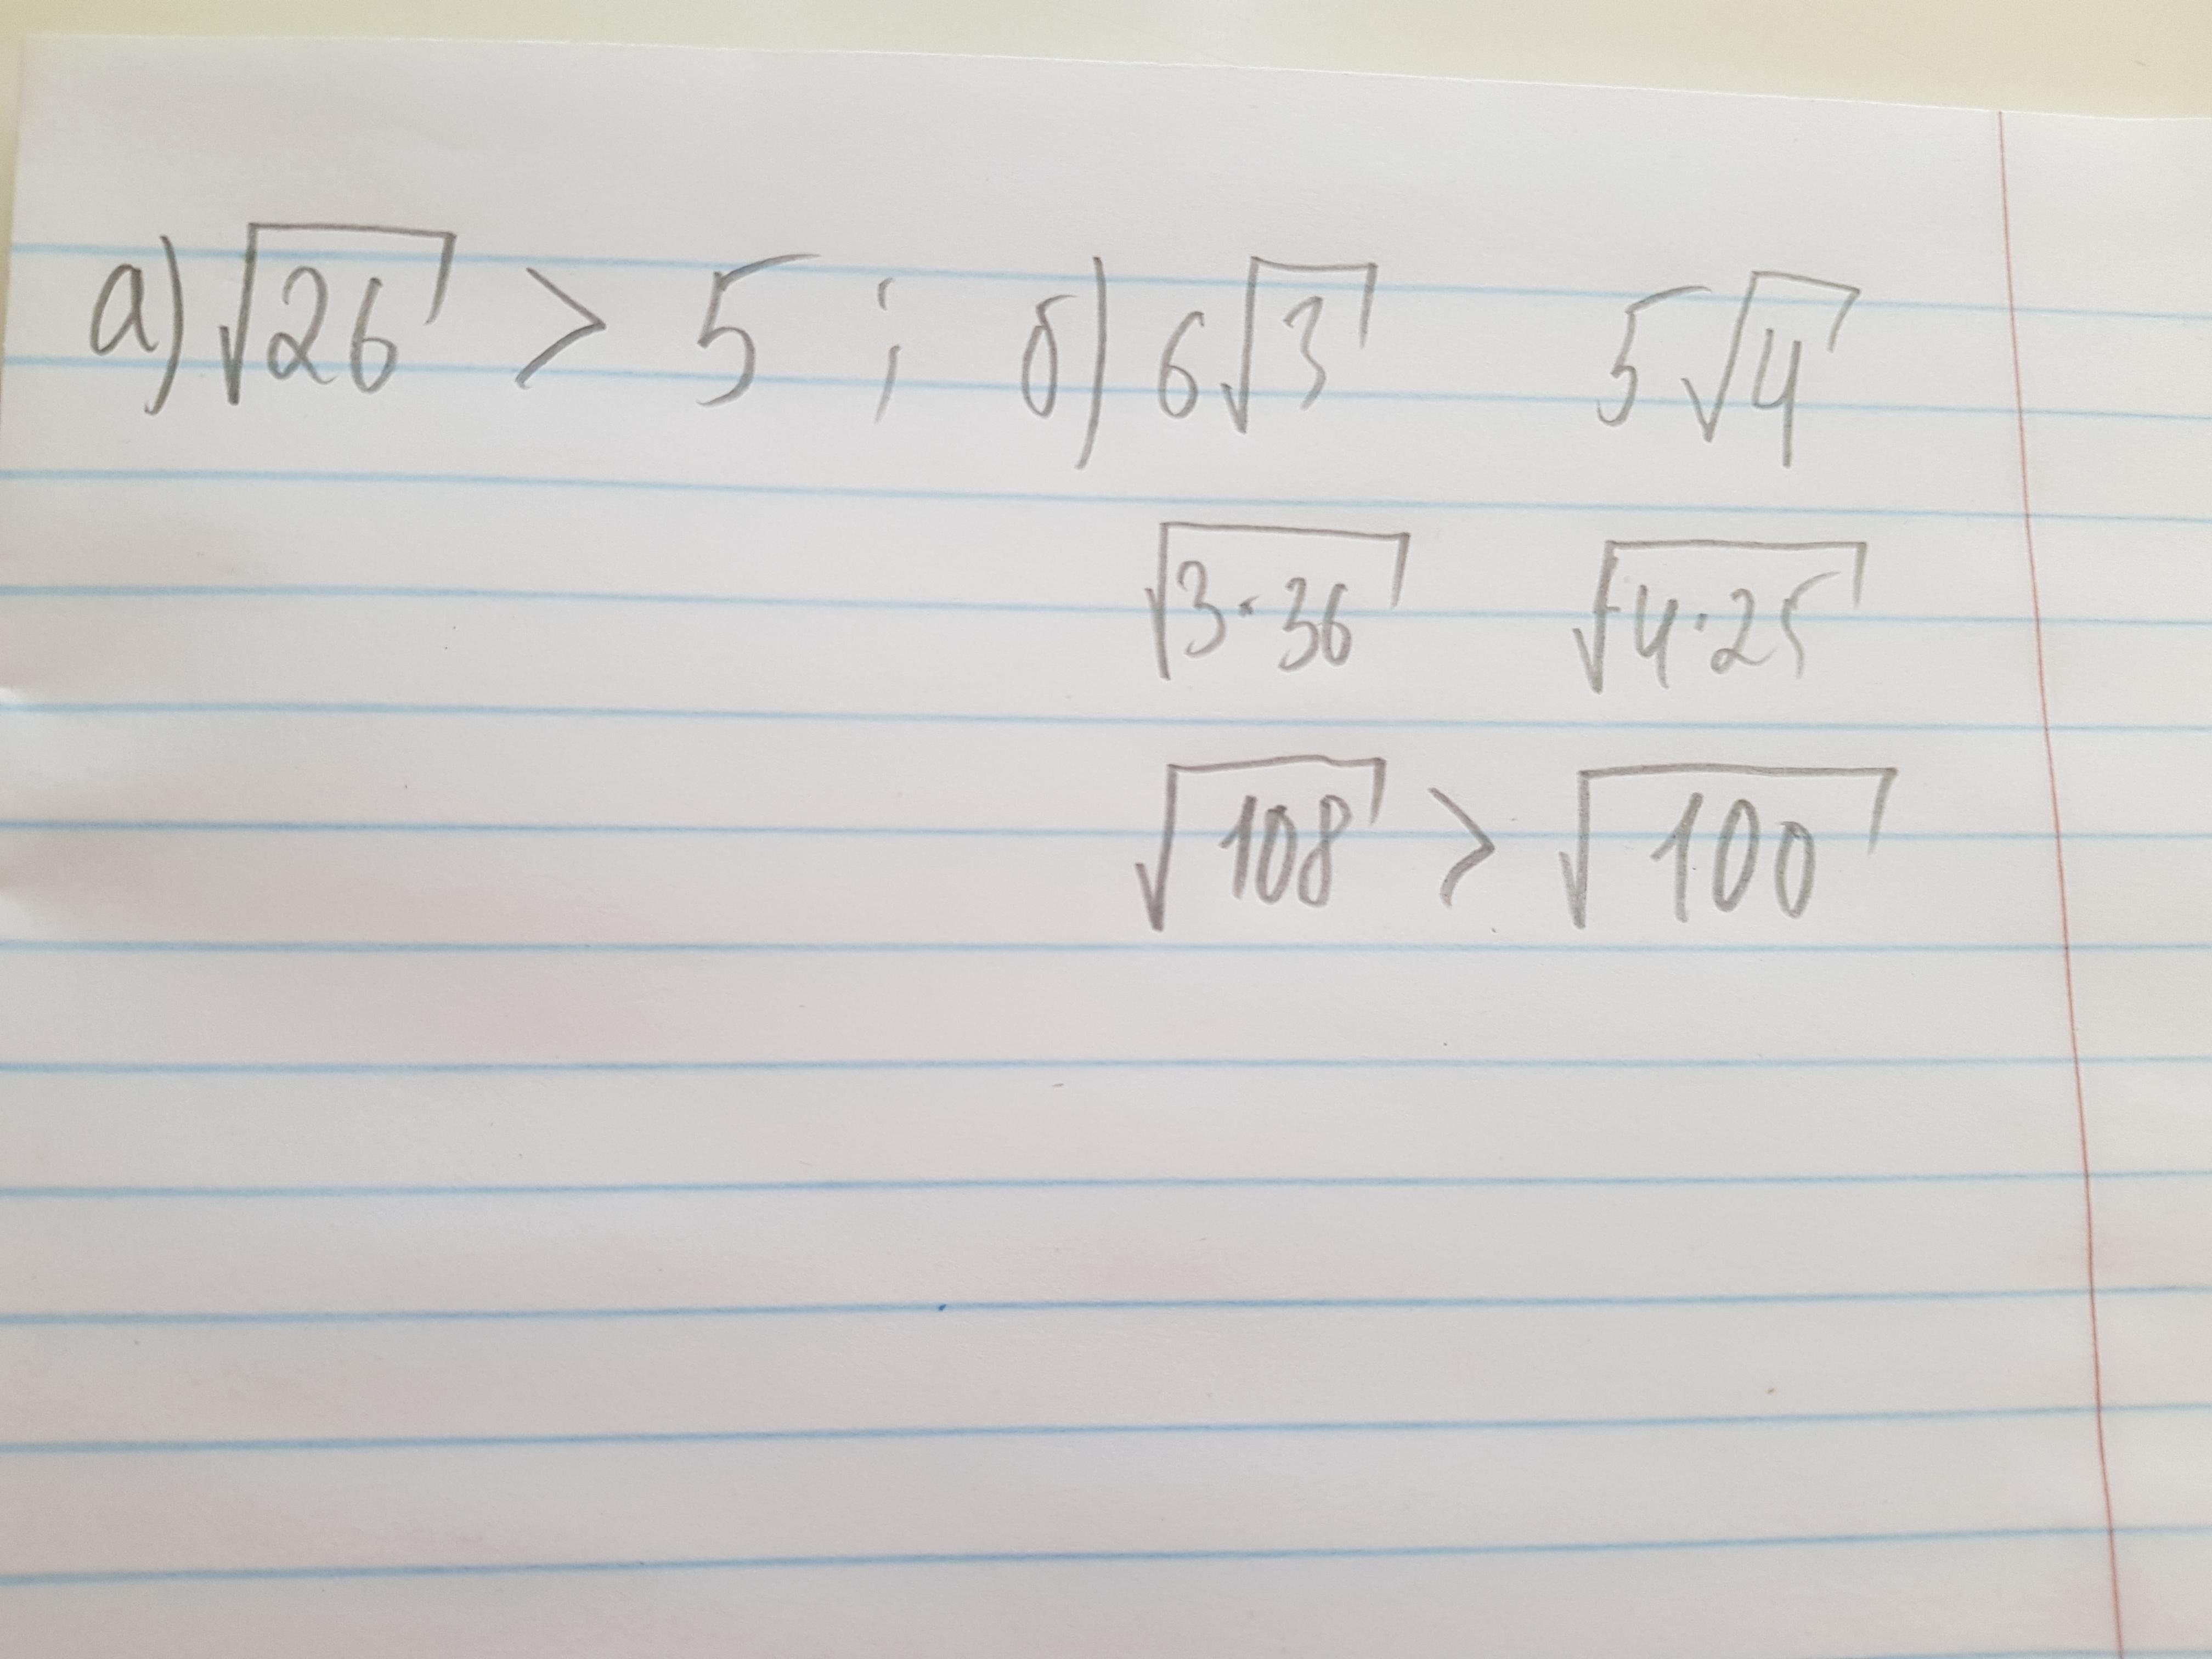 а) √26 > 5 ; б) 6√3 5√4
√3·36 √4·25
√108 > √100